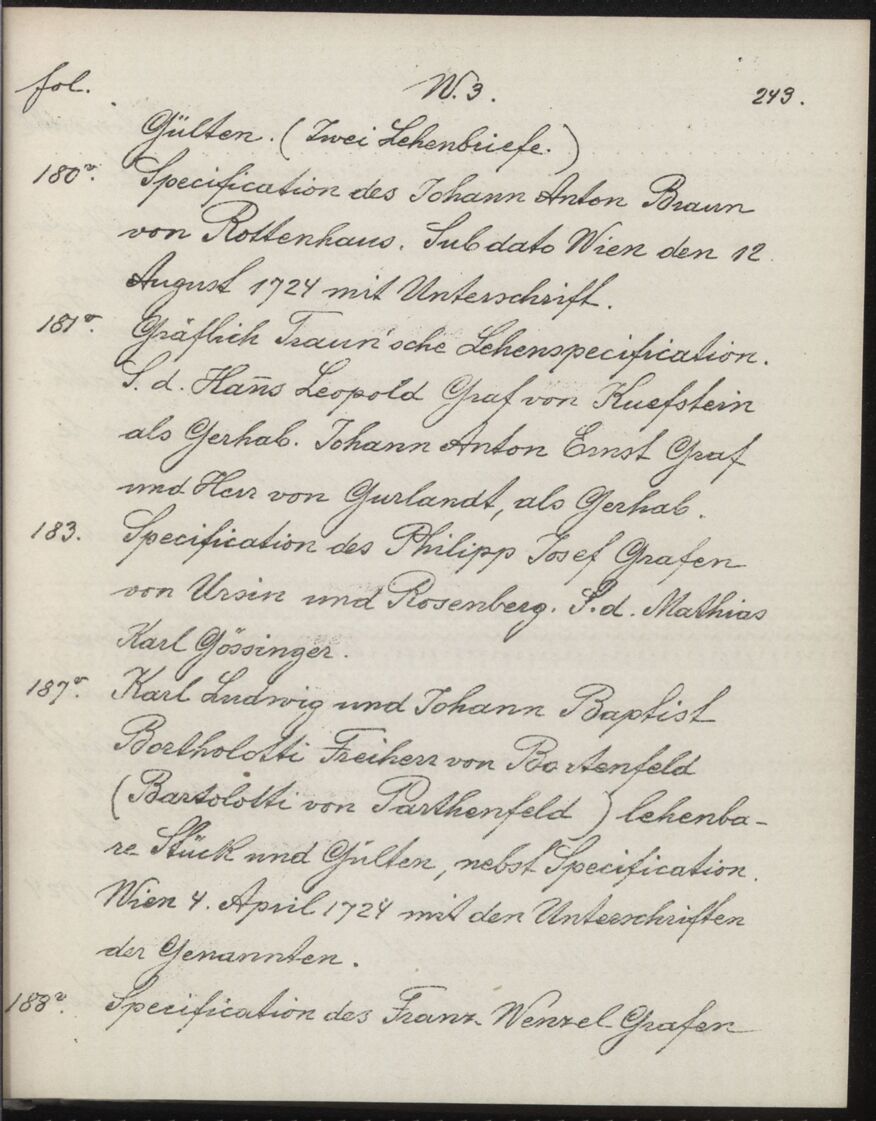 fol. N. 3. 243.
Gülten. (Zwei Lehenbriefe.)
180v. Specification des Johann Anton Braun
von Rottenhaus. Sub dato Wien den 12
August 1724 mit Unterschrift.
181v. Gräflich Traun'sche Lehenspecification.
S. d. Han̄s Leopold Graf von Kuefstein
als Gerhab. Johann Anton Ernst Graf
und Herr von Gurlandt, als Gerhab.
183. Specification des Philipp Josef Grafen
von Ursin und Rosenberg. S. d. Mathias
Karl Gössinger.
187v. Karl Ludwig und Johann Baptist
Bartholotti Freiherr von Bartenfeld
(Bartolotti von Parthenfeld) lehenba-
re Stück und Gülten, nebst Specification.
Wien 4. April 1724 mit den Unterschriften
der Genannten.
188v. Specification des Franz Wenzel Grafen